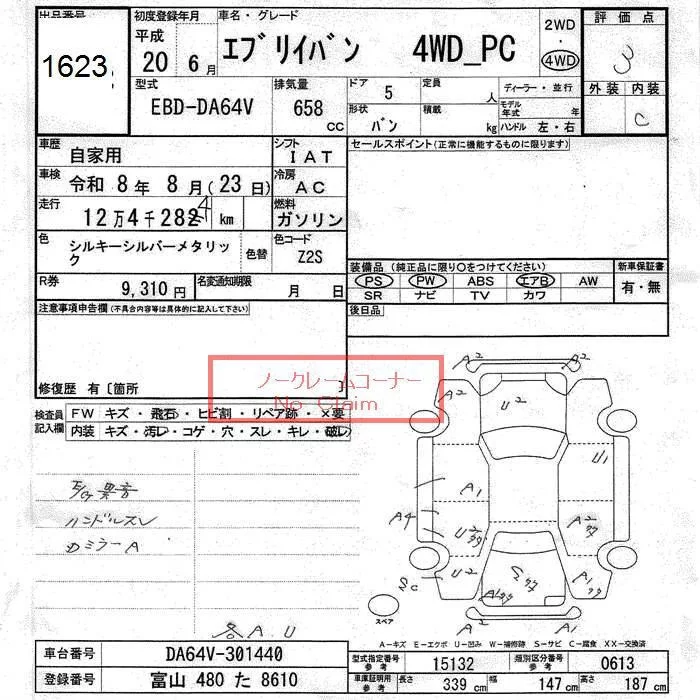 出品番号
1623
初度登録年月
平成
20 6月
車名・グレード
エブリイバン 4WD_PC
2WD
・
4WD
評価点
3
外装 内装
C
型式
EBD-DA64V
排気量
658
cc
ドア
5
定員
人
形状
バン
積載
kg
ディーラー・並行
モデル年式
年
ハンドル 左・右
車歴
自家用
シフト
IAT
車検
令和 8年 8月(23日)
冷房
AC
走行
12万4千282 km
燃料
ガソリン
色
シルキーシルバーメタリック
色替
色コード
Z2S
R券
9,310円
名変通知期限
月 日
セールスポイント(正常に機能するものに限ります)
装備品 (純正品に限り○をつけてください)
PS PW ABS エアB AW
SR ナビ TV カワ
新車保証書
有・無
後日品
注意事項申告欄(不具合内容等は具体的に記入して下さい)
修復歴 有〔箇所 〕
ノークレームコーナー
No Claim
検査員記入欄
FW キズ・飛石・ヒビ割・リペア跡・×要
内装 キズ・汚レ・コゲ・穴・スレ・キレ・破レ
E/Cg異音
ハンドルスレ
Dミラー A
A.U
A2
A2
A2
U2
U1
A1
A4
A2
U2
U2
A1
Sc
スペア
A1
A-キズ E-エクボ U-凹み W-補修跡 S-サビ C-腐食 XX-交換済
車台番号
DA64V-301440
登録番号
富山 480 た 8610
型式指定番号
参考
15132
類別区分番号
参考
0613
車庫証明用
参考
長さ
339 cm
幅
147 cm
高さ
187 cm